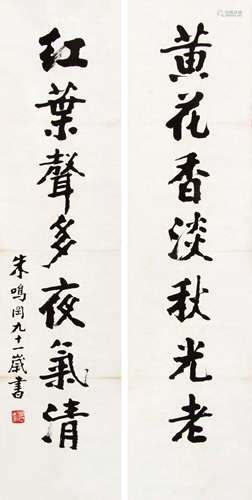 黄花香淡秋光老
红葉聲多夜氣清
朱鳴岡九十一歲書